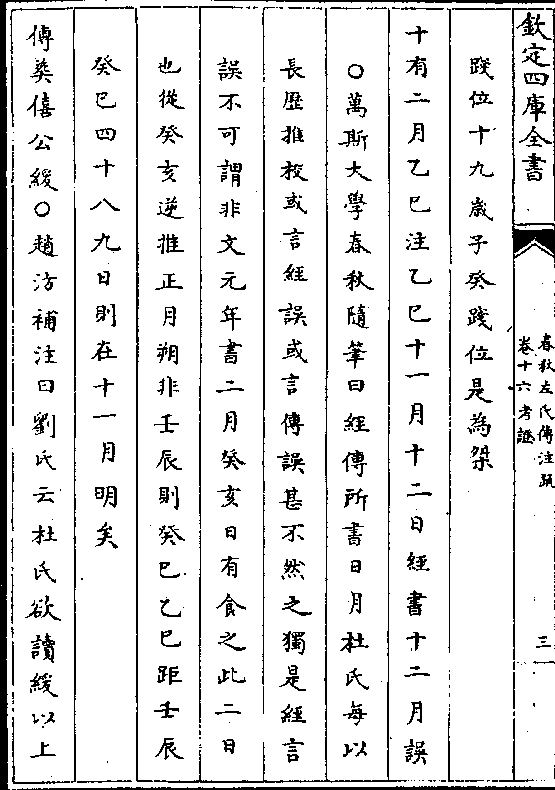 欽定四庫全書
春秋左氏傳注疏
卷十六考證
三
踐位十九嵗子癸踐位是為桀
十有二月乙巳注乙巳十一月十二日經書十二月誤
○萬斯大學春秋隨筆曰經傳所書日月杜氏每以
長歴推校或言經誤或言傳誤甚不然之獨是經言
誤不可謂非文元年書二月癸亥日有食之此二日
也從癸亥逆推正月朔非壬辰則癸巳乙巳距壬辰
癸巳四十八九日則在十一月明矣
傳葬僖公緩○趙汸補注曰劉氏云杜氏欲讀緩以上